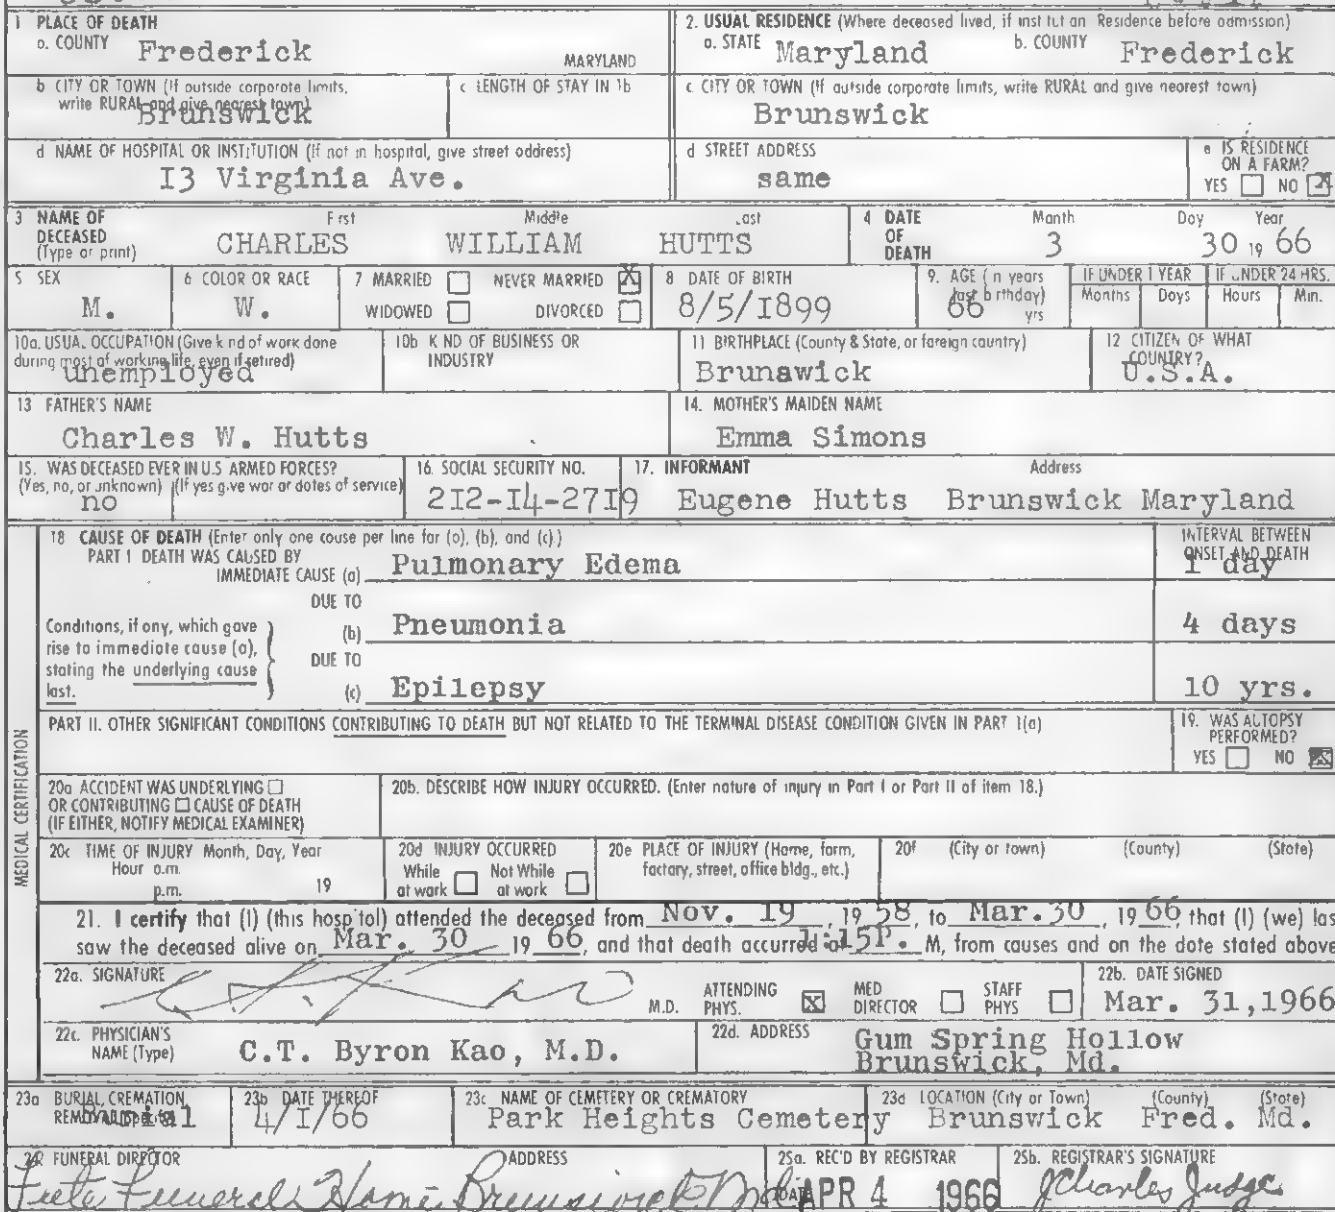 1 PLACE OF DEATH
a. COUNTY Frederick MARYLAND
2. USUAL RESIDENCE (Where deceased lived, if inst tut on Residence before admission)
a. STATE Maryland b. COUNTY Frederick
b CITY OR TOWN (If outside corporate limits, write RURAL and give nearest town) Brunswick
c LENGTH OF STAY IN 1b
c CITY OR TOWN (If outside corporate limits, write RURAL and give nearest town)
Brunswick
d NAME OF HOSPITAL OR INSTITUTION (If not in hospital, give street address)
I3 Virginia Ave.
d STREET ADDRESS
same
e IS RESIDENCE ON A FARM?
YES NO X
3 NAME OF DECEASED (Type or print)
First Middle Last
CHARLES WILLIAM HUTTS
4 DATE OF DEATH
Month Day Year
3 30 19 66
5 SEX
M.
6 COLOR OR RACE
W.
7 MARRIED NEVER MARRIED X
WIDOWED DIVORCED
8 DATE OF BIRTH
8/5/I899
9. AGE (In years last birthday)
66 yrs
IF UNDER 1 YEAR
Months Days
IF UNDER 24 HRS.
Hours Min.
10a. USUAL OCCUPATION (Give kind of work done during most of working life, even if retired)
unemployed
10b KIND OF BUSINESS OR INDUSTRY
11 BIRTHPLACE (County & State, or foreign country)
Brunawick
12 CITIZEN OF WHAT COUNTRY?
U.S.A.
13 FATHER'S NAME
Charles W. Hutts
14. MOTHER'S MAIDEN NAME
Emma Simons
15. WAS DECEASED EVER IN U.S ARMED FORCES?
(Yes, no, or unknown) (If yes give war or dates of service)
no
16. SOCIAL SECURITY NO.
2I2-I4-27I9
17. INFORMANT Address
Eugene Hutts Brunswick Maryland
MEDICAL CERTIFICATION
18 CAUSE OF DEATH (Enter only one cause per line for (a), (b), and (c).)
INTERVAL BETWEEN ONSET AND DEATH
PART 1 DEATH WAS CAUSED BY
IMMEDIATE CAUSE (a) Pulmonary Edema 1 day
DUE TO
Conditions, if any, which gave rise to immediate cause (a), stating the underlying cause last.
(b) Pneumonia 4 days
DUE TO
(c) Epilepsy 10 yrs.
PART II. OTHER SIGNIFICANT CONDITIONS CONTRIBUTING TO DEATH BUT NOT RELATED TO THE TERMINAL DISEASE CONDITION GIVEN IN PART I(a)
19. WAS AUTOPSY PERFORMED?
YES NO X
20a ACCIDENT WAS UNDERLYING
OR CONTRIBUTING CAUSE OF DEATH
(IF EITHER, NOTIFY MEDICAL EXAMINER)
20b. DESCRIBE HOW INJURY OCCURRED. (Enter nature of injury in Part I or Part II of item 18.)
20c TIME OF INJURY Month, Day, Year
Hour a.m.
p.m. 19
20d INJURY OCCURRED
While at work Not While at work
20e PLACE OF INJURY (Home, farm, factory, street, office bldg., etc.)
20f (City or town) (County) (State)
21. I certify that (I) (this hospital) attended the deceased from Nov. 19, 19 58, to Mar.30, 19 66, that (I) (we) las
saw the deceased alive on Mar. 30 19 66, and that death occurred at 1:15P. M, from causes and on the date stated above
22a. SIGNATURE
M.D. ATTENDING PHYS. X MED DIRECTOR STAFF PHYS
22b. DATE SIGNED
Mar. 31,1966
22c. PHYSICIAN'S NAME (Type)
C.T. Byron Kao, M.D.
22d. ADDRESS
Gum Spring Hollow
Brunswick, Md.
23a BURIAL, CREMATION, REMOVAL
Burial
23b DATE THEREOF
4/I/66
23c NAME OF CEMETERY OR CREMATORY
Park Heights Cemetery
23d LOCATION (City or Town) (County) (State)
Brunswick Fred. Md.
FUNERAL DIRECTOR ADDRESS
Feete Funeral Home Brunswick Md.
25a. REC'D BY REGISTRAR
DATE APR 4 1966
25b. REGISTRAR'S SIGNATURE
J Charles Judge